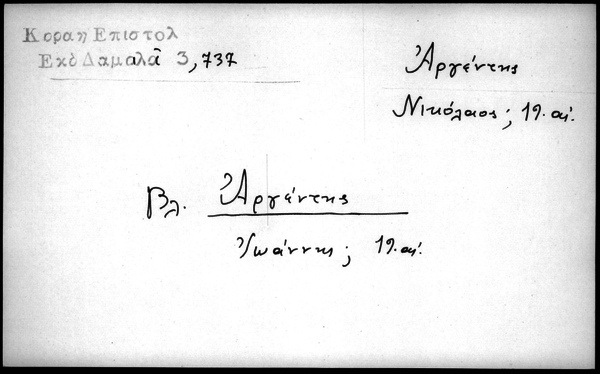 Κοραη Επιστολ
Εκδ Δαμαλᾶ 3,737
Ἀργέντης
Νικόλαος; 19. αἰ.
Βλ. Ἀργέντης
Ἰωάννης; 19. αἰ.